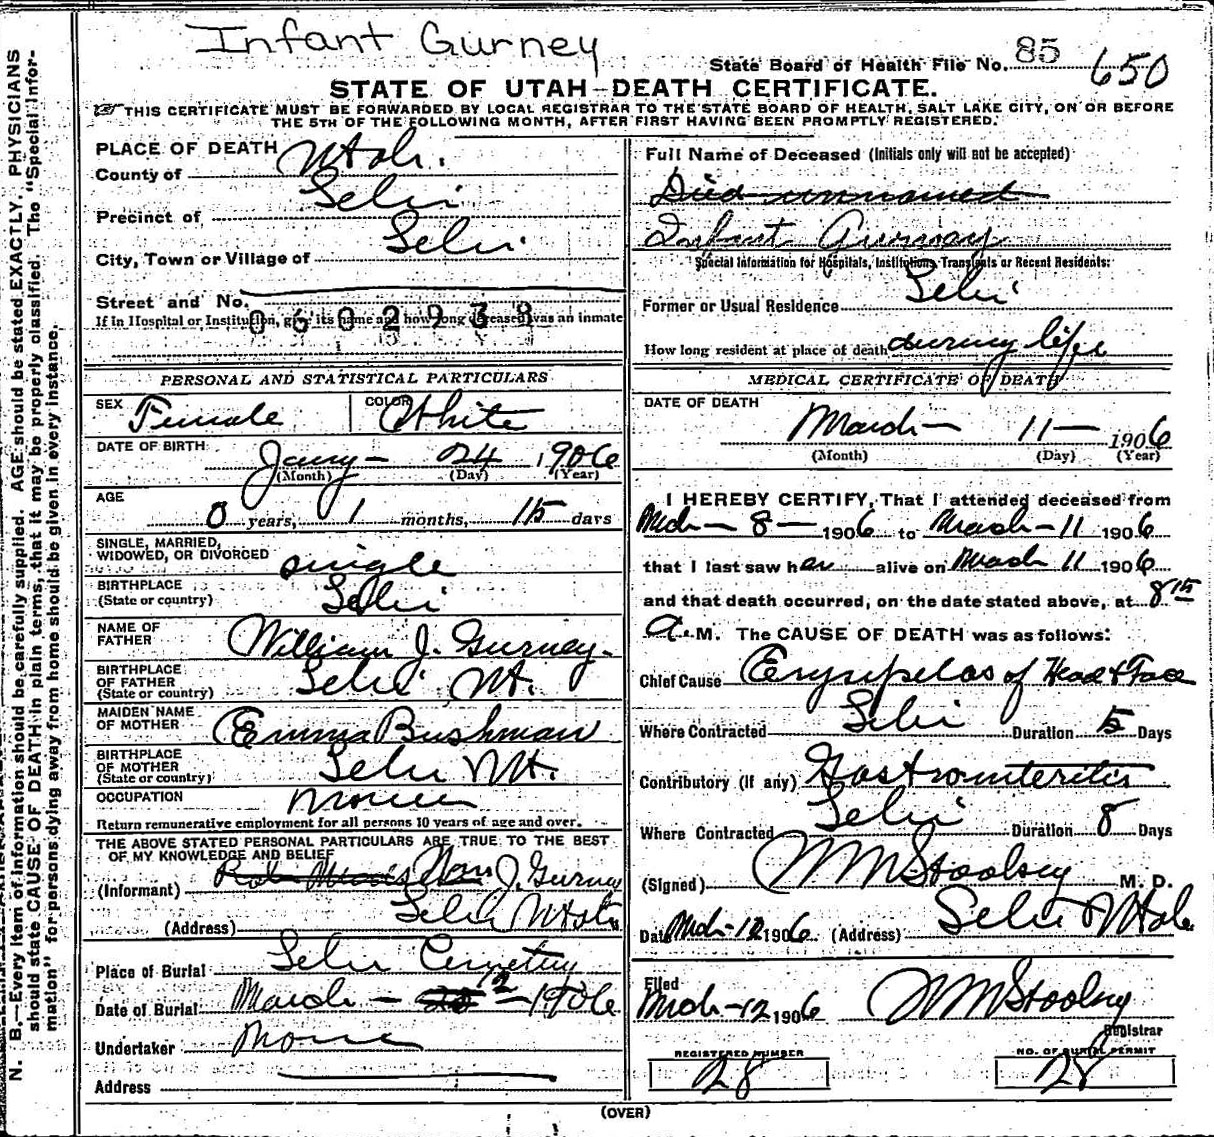 Infant Gurney
State Board of Health File No. 85 650
STATE OF UTAH-DEATH CERTIFICATE.
THIS CERTIFICATE MUST BE FORWARDED BY LOCAL REGISTRAR TO THE STATE BOARD OF HEALTH, SALT LAKE CITY, ON OR BEFORE
THE 5TH OF THE FOLLOWING MONTH, AFTER FIRST HAVING BEEN PROMPTLY REGISTERED.
PLACE OF DEATH
County of Utah.
Precinct of Lehi
City, Town or Village of Lehi
Street and No.
If in Hospital or Institution, give its name and how long deceased was an inmate
0602938
PERSONAL AND STATISTICAL PARTICULARS
SEX Female COLOR White
DATE OF BIRTH Jany- 24 1906
(Month) (Day) (Year)
AGE
0 years, 1 months, 15 days
SINGLE, MARRIED,
WIDOWED, OR DIVORCED single
BIRTHPLACE
(State or country) Lehi
NAME OF
FATHER William J. Gurney.
BIRTHPLACE
OF FATHER
(State or country) Lehi Ut.
MAIDEN NAME
OF MOTHER Emma Bushman
BIRTHPLACE
OF MOTHER
(State or country) Lehi Ut.
OCCUPATION None
Return remunerative employment for all persons 10 years of age and over.
THE ABOVE STATED PERSONAL PARTICULARS ARE TRUE TO THE BEST
OF MY KNOWLEDGE AND BELIEF
(Informant) J. Gurney
(Address) Lehi Utah
Place of Burial Lehi Cemetery
Date of Burial March - 12 - 1906
Undertaker None
Address
Full Name of Deceased (Initials only will not be accepted)
Died unnamed
Infant Gurney
Special Information for Hospitals, Institutions, Transients or Recent Residents:
Former or Usual Residence Lehi
How long resident at place of death during life
MEDICAL CERTIFICATE OF DEATH
DATE OF DEATH
March 11 1906
(Month) (Day) (Year)
I HEREBY CERTIFY, That I attended deceased from
Mch - 8 - 1906 to March - 11 1906
that I last saw her alive on March 11 1906
and that death occurred, on the date stated above, at 8 15
A. M. The CAUSE OF DEATH was as follows:
Chief Cause Erysipelas of Head & Face
Where Contracted Lehi Duration 5 Days
Contributory (If any) Gastroenteritis
Where Contracted Lehi Duration 8 Days
(Signed) M. D.
Date Mch-12 1906 (Address) Lehi Utah
Filed
Mch-12 1906
Registrar
REGISTERED NUMBER
28
NO. OF BURIAL PERMIT
28
(OVER)
N. B.—Every item of information should be carefully supplied. AGE should be stated EXACTLY. PHYSICIANS
should state CAUSE OF DEATH in plain terms, that it may be properly classified. The "Special Infor-
mation" for persons dying away from home should be given in every instance.